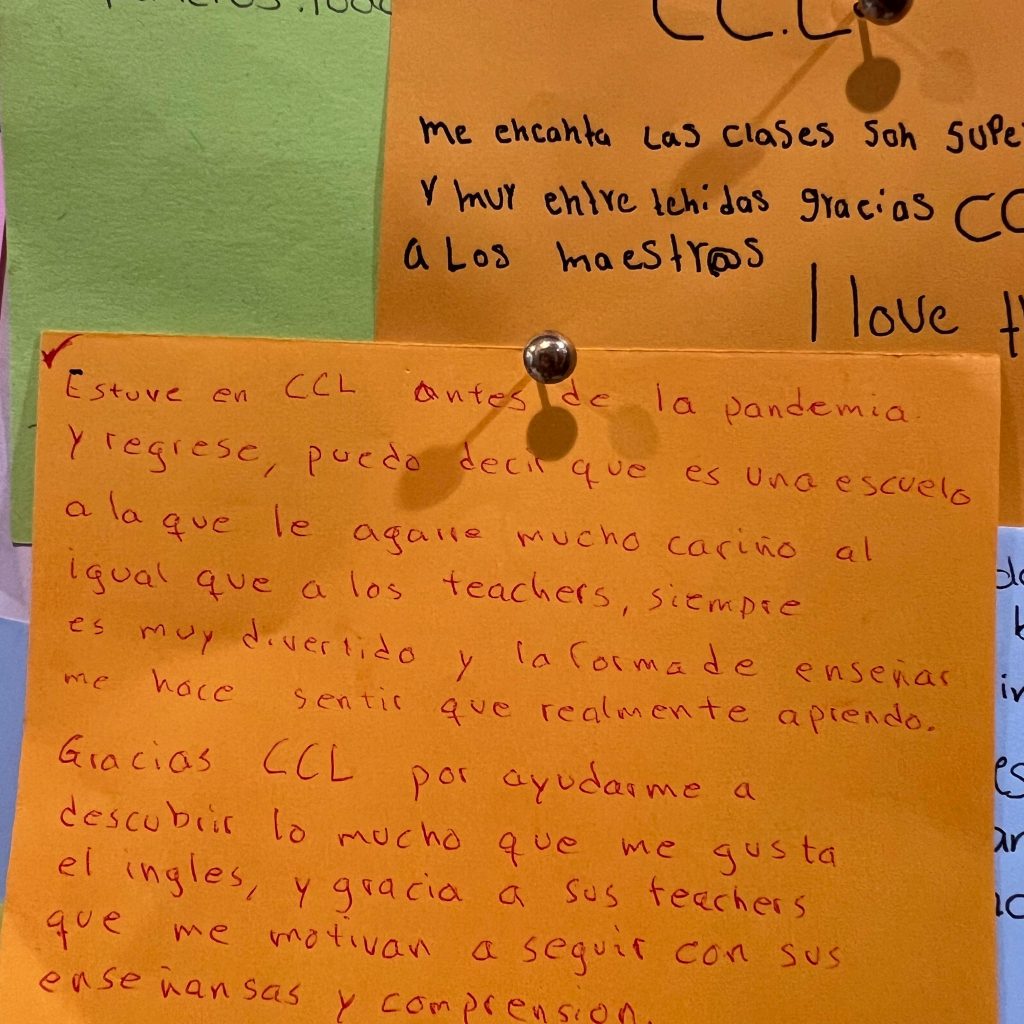 CC.L
me encanta Las clases son supe
Y muy entretenidas gracias CC
a Los maestr@s
I love
Estuve en CCL antes de la pandemia
y regrese, puedo decir que es una escuela
a la que le agarre mucho cariño al
igual que a los teachers, siempre
es muy divertido y la forma de enseñar
me hace sentir que realmente aprendo.
Gracias CCL por ayudarme a
descubrir lo mucho que me gusta
el ingles, y gracia a sus teachers
que me motivan a seguir con sus
enseñansas y comprension.